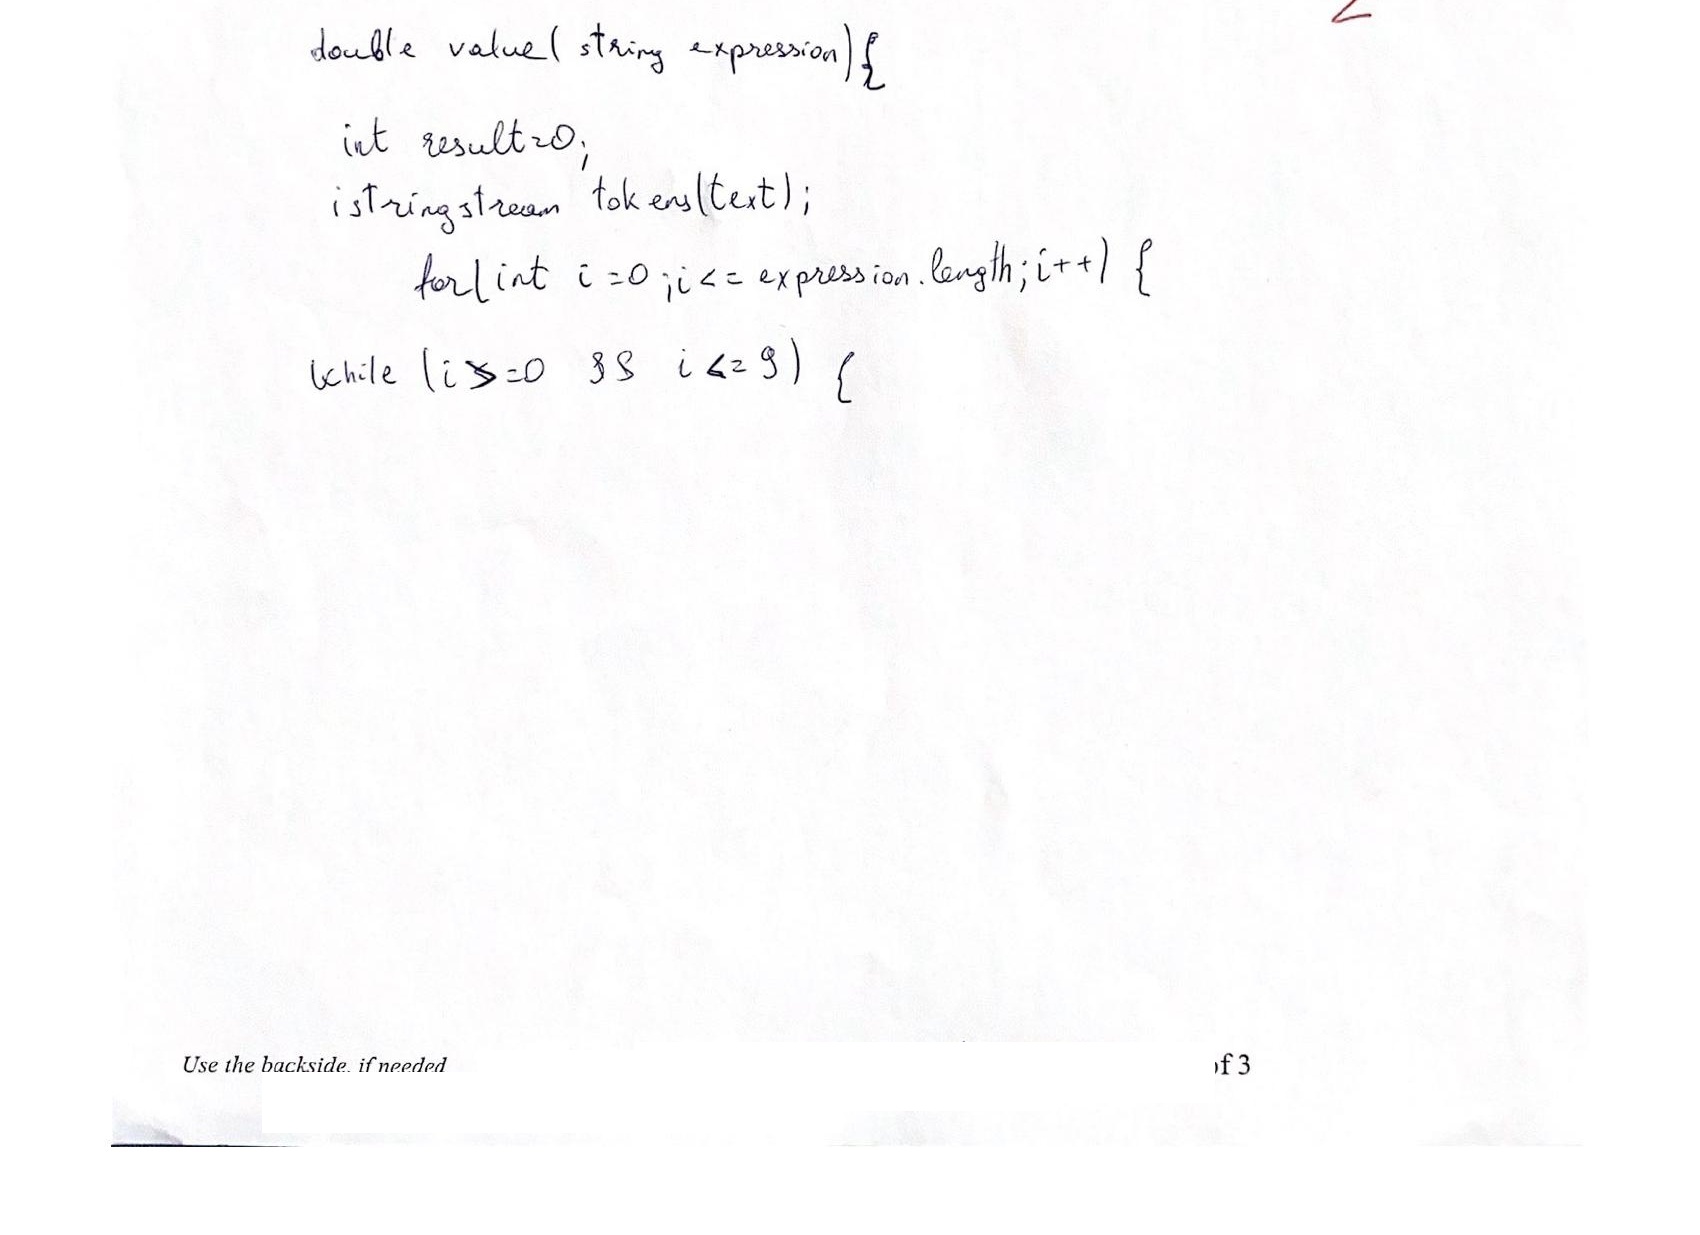 double value( string expression){
int result=0;
istringstream tokens(text);
for(int i=0;i<= expression.length;i++) {
while (i>=0 && i<=9) {
Use the backside, if needed
of 3